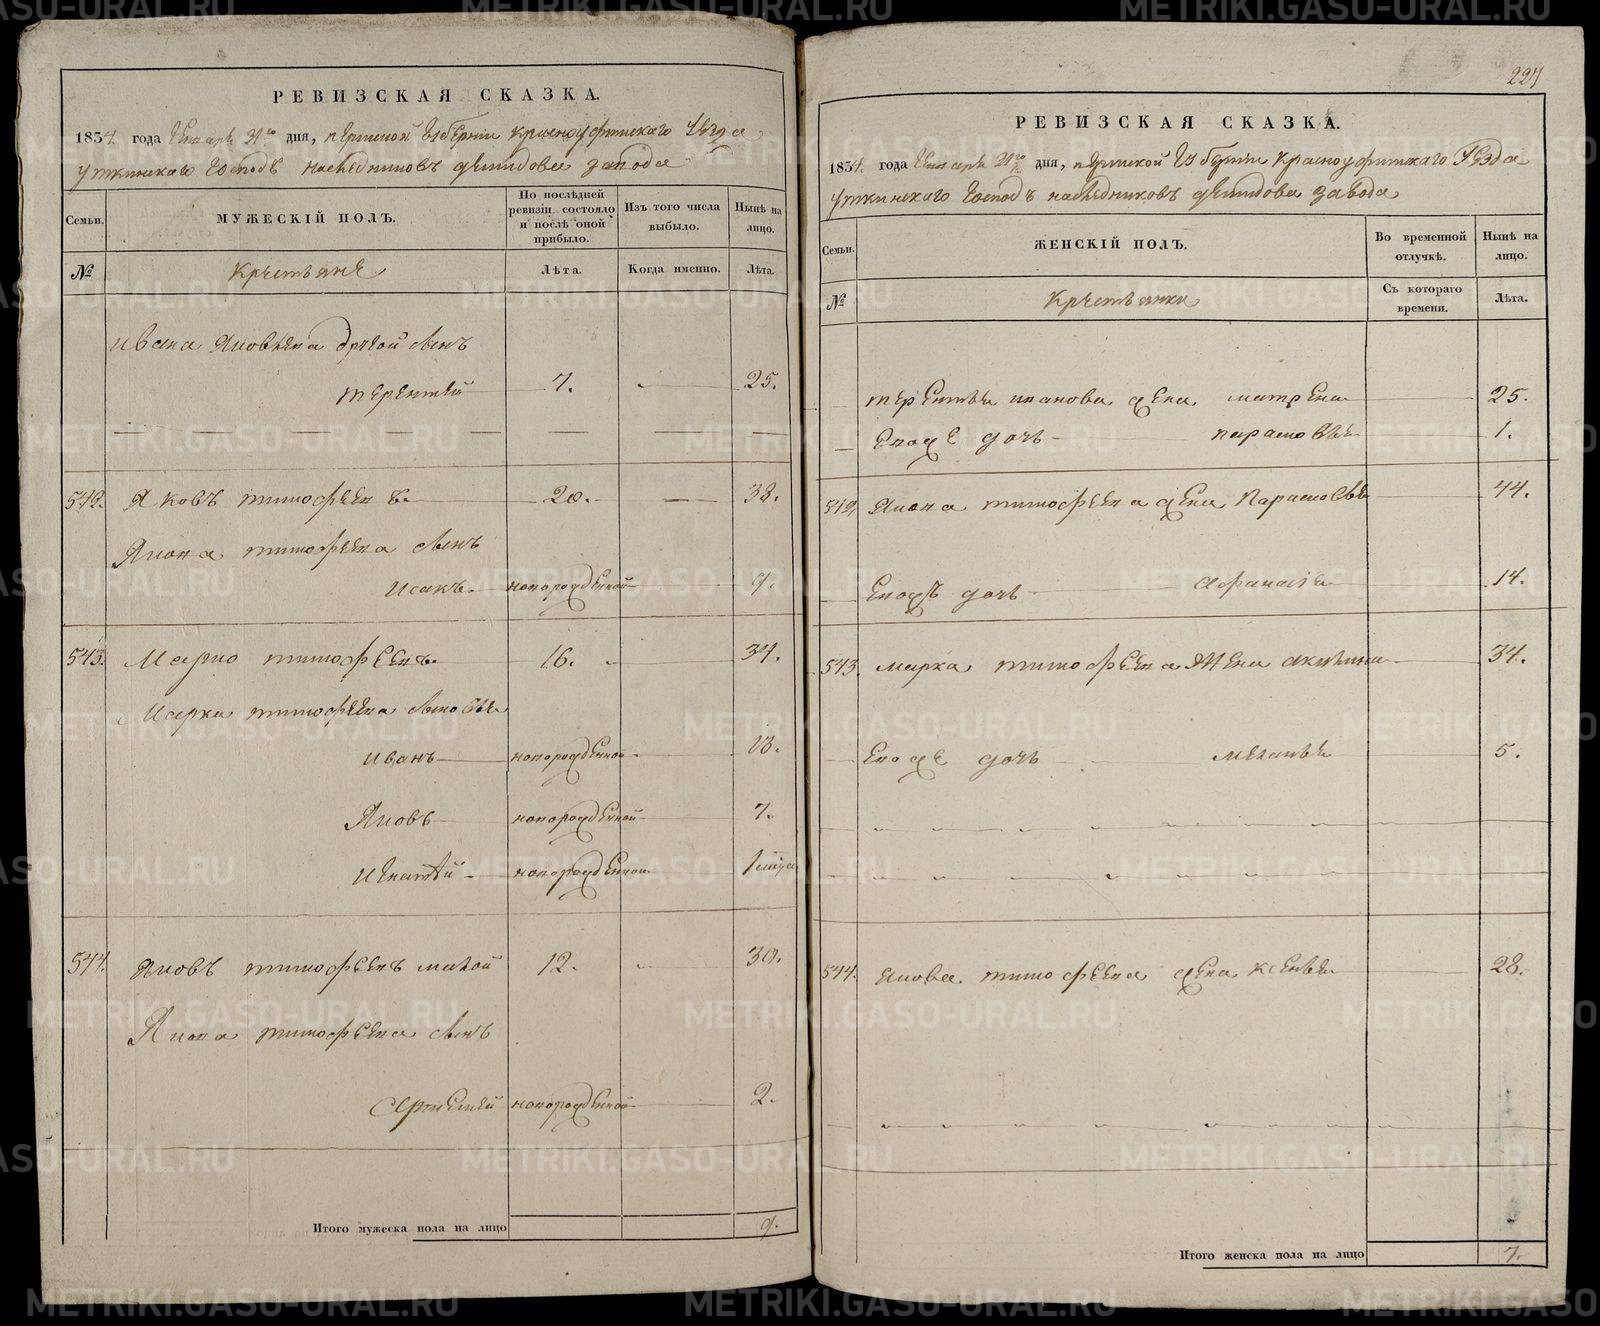 РЕВИЗСКАЯ СКАЗКА.
1834. года Генваря 31го дня, Пермской Губернии Красноуфимскаго Уезда
Уткинскаго Господъ наследниковъ Демидова завода
Семьи.
МУЖЕСКІЙ ПОЛЪ.
По послѣдней ревизіи состояло и послѣ оной прибыло.
Изъ того числа выбыло.
Нынѣ на лицо.
№
Крестьяне
Лѣта.
Когда именно.
Лѣта.
Ивана Яковлева другой сынъ
Терентей 7. 25.
542. Яковъ Тимофеевъ 20. 38.
Якова Тимофеева сынъ
Исакъ новорожденной 9.
543. Марко Тимофеевъ 16. 34.
Марка Тимофеева сыновья
Иванъ новорожденной 13.
Яковъ новорожденной 7.
Игнатей новорожденной 1
544. Яковъ Тимофеевъ малой 12. 30.
Якова Тимофеева сынъ
новорожденной 2.
Итого мужеска пола на лицо 9.
227
РЕВИЗСКАЯ СКАЗКА.
1834. года Генваря 31го дня, Пермской Губернии Красноуфимскаго Уезда
Уткинскаго Господъ наследниковъ Демидова завода
Семьи.
ЖЕНСКІЙ ПОЛЪ.
Во временной отлучкѣ.
Нынѣ на лицо.
№
Крестьянки
Съ котораго времени.
Лѣта.
Терентья Иванова жена Матрена 25.
Евоже дочь Парасковья 1.
542. Якова Тимофеева жена Парасковья 44.
Евожъ дочь Афанасия 14.
543. Марка Тимофеева жена Акулина 34.
Евоже дочь Меланья 5.
544. Якова Тимофеева жена Ксенья 28.
Итого женска пола на лицо 7.
METRIKI.GASO-URAL.RU